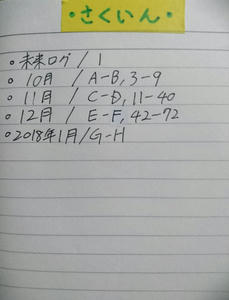 ・さくいん・
・未来ログ / 1
・10月 / A-B, 3-9
・11月 / C-D, 11-40
・12月 / E-F, 42-72
・2018年1月 / G-H